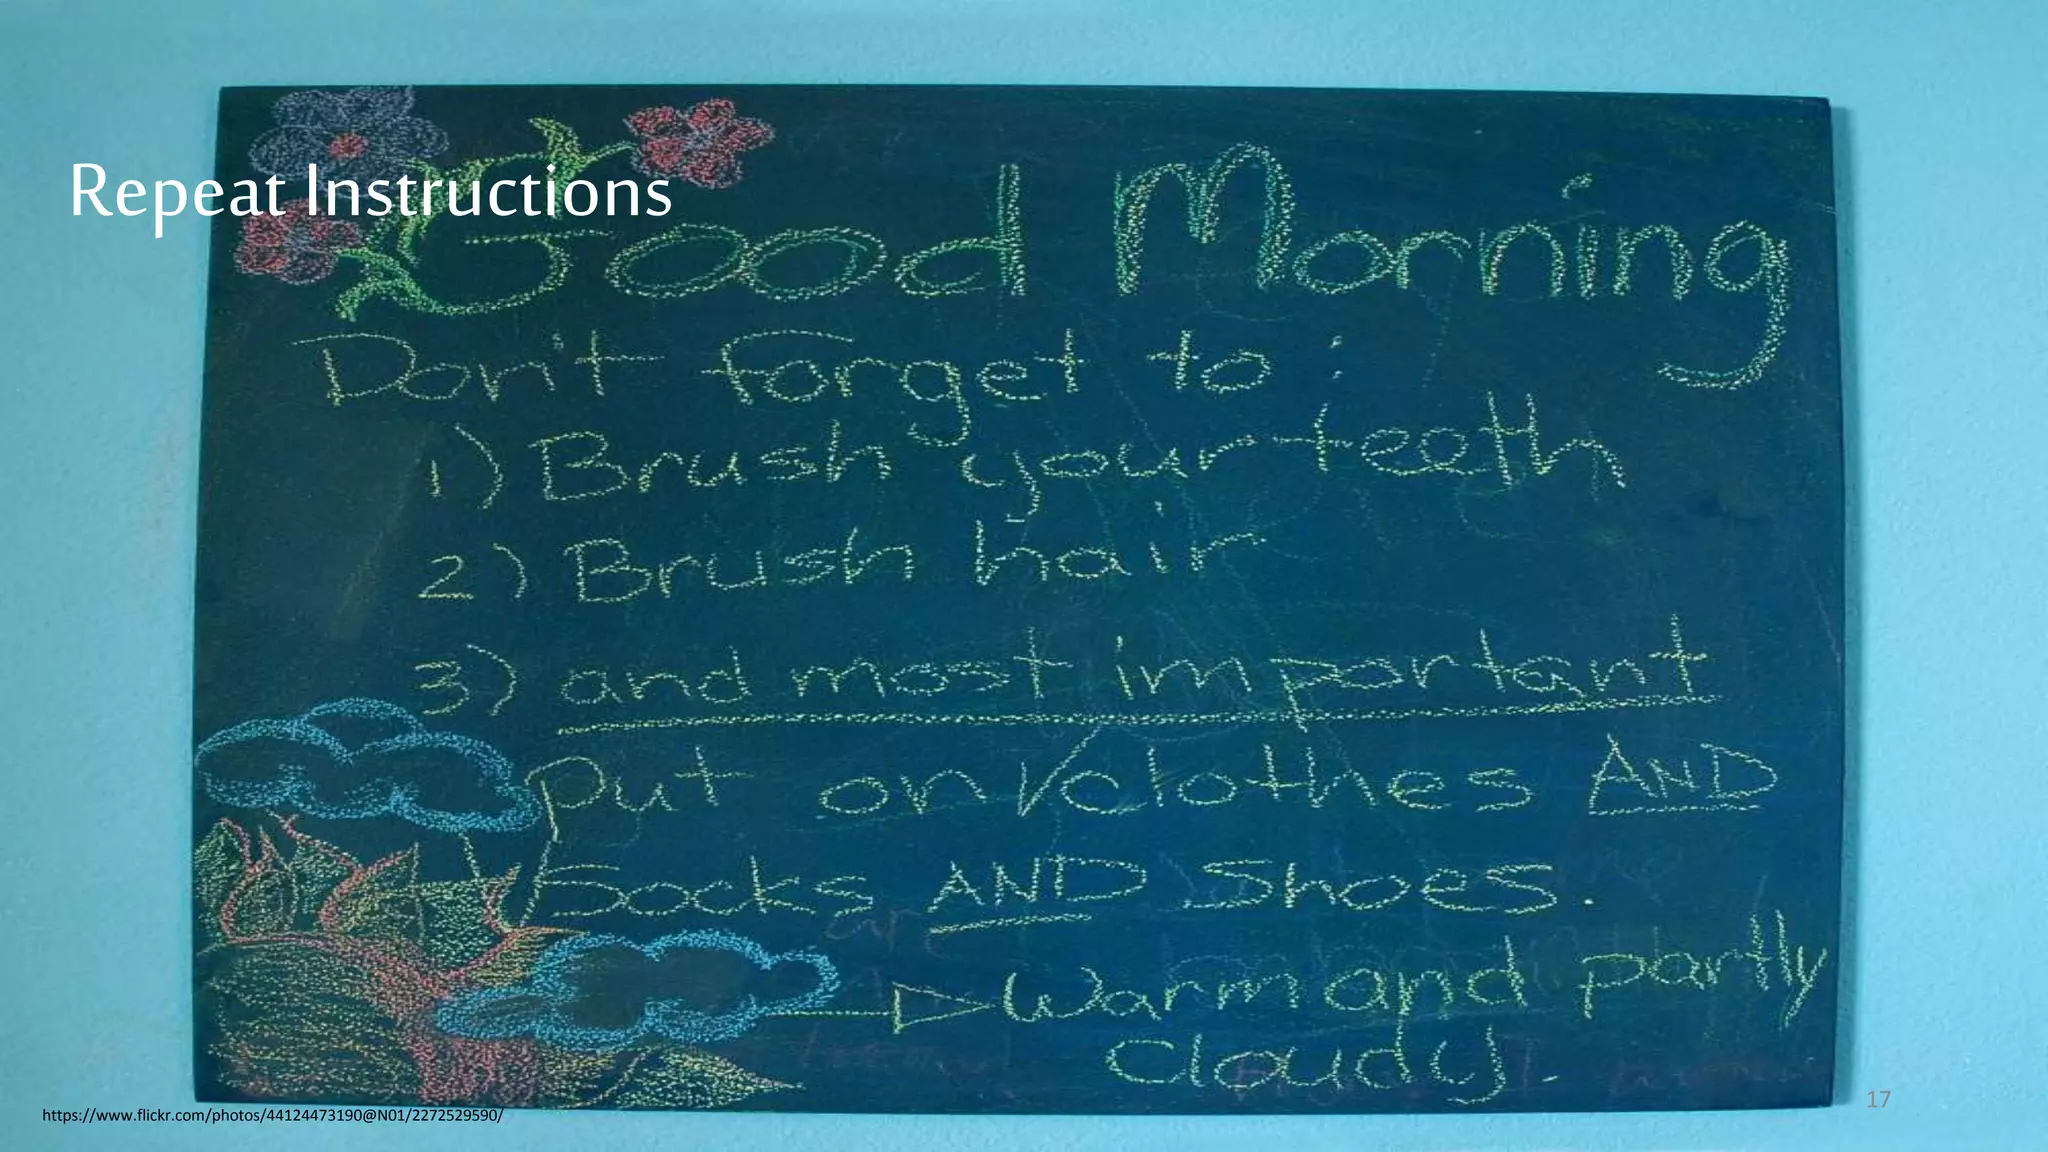 Repeat Instructions
Good Morning
Don't forget to:
1) Brush your teeth
2) Brush hair
3) and most important
Put on clothes AND
Socks AND Shoes.
Warm and partly
cloudy.
https://www.flickr.com/photos/44124473190@N01/2272529590/
17